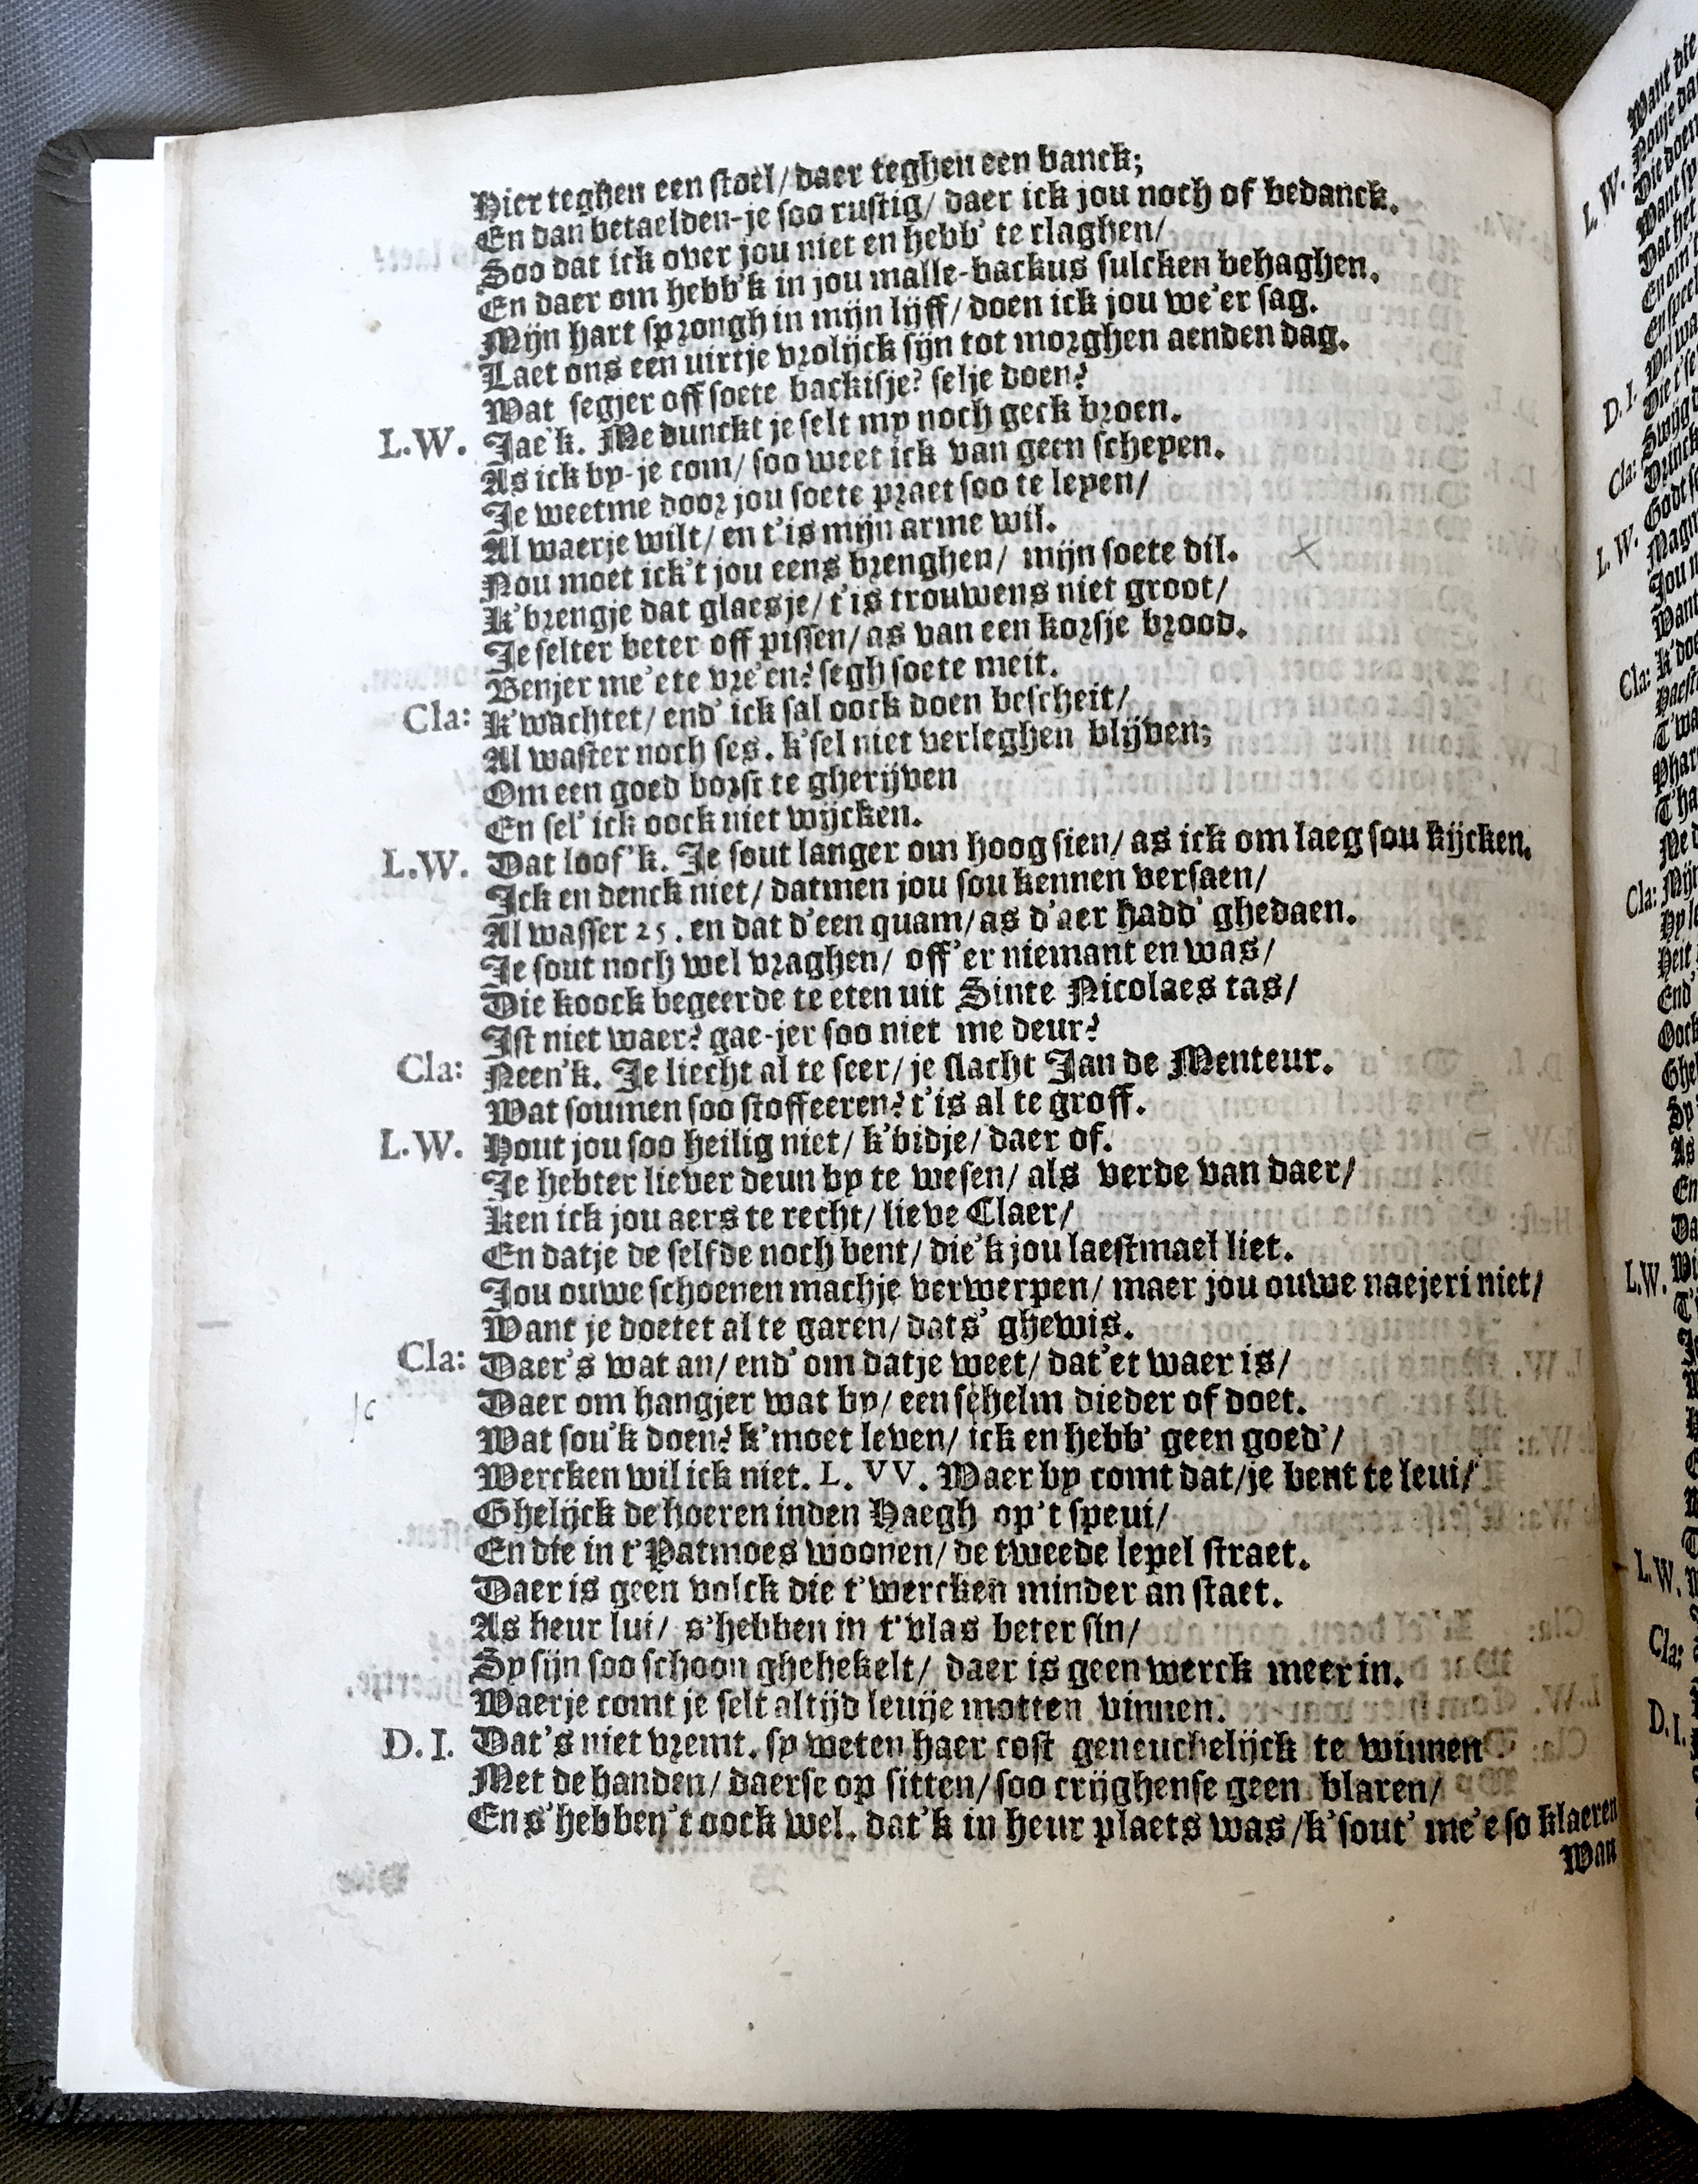 Hier teghen een stoel/ daer teghen een banck;
En dan betaelden-je soo rustig/ daer ick jou noch of bedanck.
Soo dat ick over jou niet en hebb' te claghen/
En daer om hebb'k in jou malle-backus sulcken behaghen.
Mijn hart sprongh in mijn lijff/ doen ick jou we'er sag.
Laet ons een uirtje vrolijck sijn tot morghen aenden dag.
Wat segjer off soete backisje? selje doen?
L.W. Jae'k. Me dunckt je selt my noch geck broen.
As ick by-je com/ soo weet ick van geen schepen.
Je weetme door jou soete praet soo te lepen/
Al waerje wilt/ en t'is mijn arme wil.
Nou moet ick't jou eens brenghen/ mijn soete dil.
K'brengje dat glaesje/ t'is trouwens niet groot/
Je selter beter off pissen/ as van een korsje brood.
Benjer me'ete vre'en? segh soete meit.
Cla: K'wachtet/ end' ick sal oock doen bescheit/
Al waster noch ses. k'sel niet verleghen blijven;
Om een goed borst te gherijven
En sel' ick oock niet wijcken.
L.W. Dat loof'k. Je sout langer om hoog sien/ as ick om laeg sou kijcken.
Ick en denck niet/ datmen jou sou kennen versaen/
Al wasser 25. en dat d'een quam/ as d'aer hadd' ghedaen.
Je sout noch wel vraghen/ off'er niemant en was/
Die koock begeerde te eten uit Sinte Nicolaes tas/
Ist niet waer? gae-jer soo niet me deur?
Cla: Neen'k. Je liecht al te seer/ je slacht Jan de Menteur.
Wat soumen soo stoffeeren? t'is al te groff.
L.W. Hout jou soo heilig niet/ k'bidje/ daer of.
Je hebter liever deun by te wesen/ als verde van daer/
Ken ick jou aers te recht/ lieve Claer/
En datje de selfde noch bent/ die'k jou laestmael liet.
Jou ouwe schoenen machje verwerpen/ maer jou ouwe naejeri niet/
Want je doetet al te garen/ dats' ghewis.
Cla: Daer's wat an/ end' om datje weet/ dat'et waer is/
Daer om hangjer wat by/ een schelm dieder of doet.
Wat sou'k doen? k'moet leven/ ick en hebb' geen goed'/
Wercken wil ick niet. L. VV. Waer by comt dat/ je bent te leui/
Ghelijck de hoeren inden Haegh op't speui/
En die in t'Patmoes woonen/ de tweede lepel straet.
Daer is geen volck die t'wercken minder an staet.
As heur lui/ s'hebben in t'vlas beter sin/
Sy sijn soo schoon ghehekelt/ daer is geen werck meer in.
Waerje comt je selt altijd leuije motten vinnen.
D.I. Dat's niet vremt. sy weten haer cost geneuchelijck te winnen
Met de handen/ daerse op sitten/ soo crijghense geen blaren/
En s'hebben't oock wel. dat'k in heur plaets was/ k'sout' me'e so klaeren
Wan